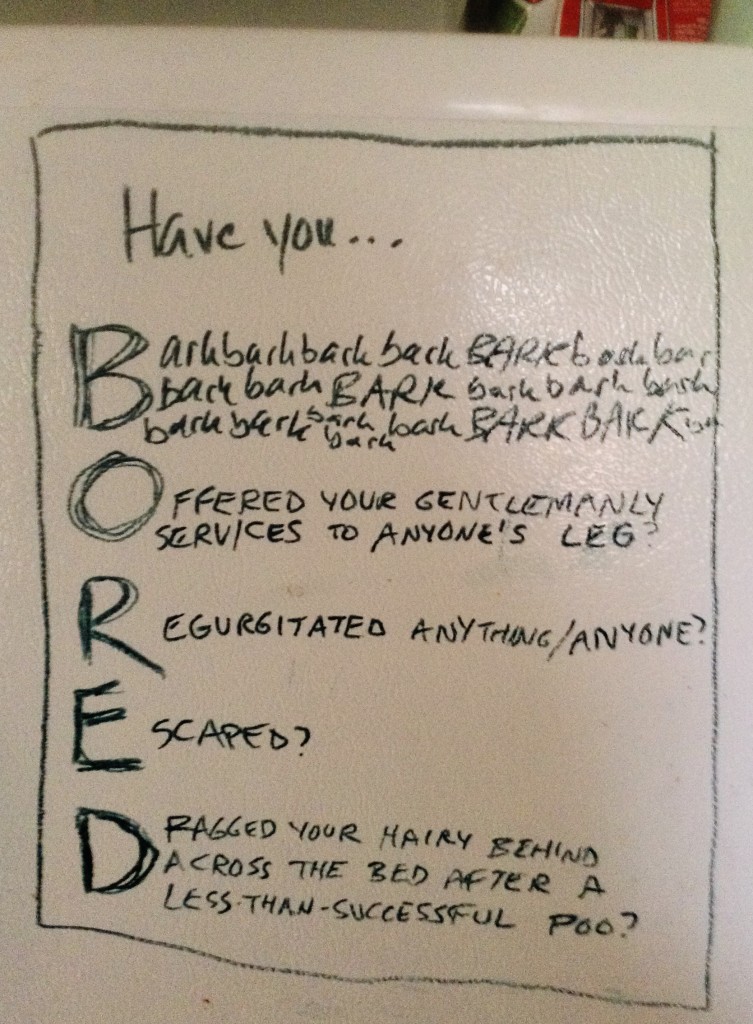 Have you...
Barkbarkbark bark BARK bark bar
bark bark BARK bark bark bark
bark bark bark bark bark BARK BARK
OFFERED YOUR GENTLEMANLY
SERVICES TO ANYONE'S LEG?
REGURGITATED ANYTHING/ANYONE?
ESCAPED?
DRAGGED YOUR HAIRY BEHIND
ACROSS THE BED AFTER A
LESS-THAN-SUCCESSFUL POO?